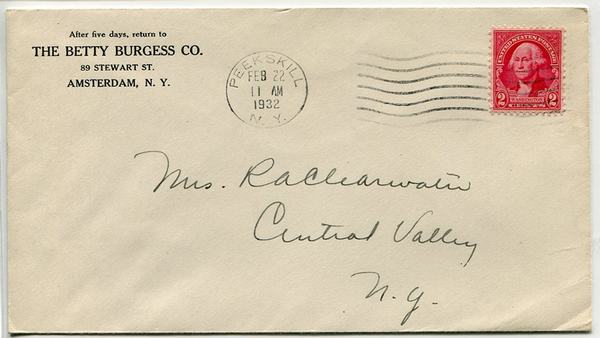 After five days, return to
THE BETTY BURGESS CO.
89 STEWART ST.
AMSTERDAM, N. Y.
PEEKSKILL
FEB 22
11 AM
1932
N. Y.
UNITED STATES POSTAGE
WASHINGTON
2 2
Mrs. R A Clearwater
Central Valley
N. Y.